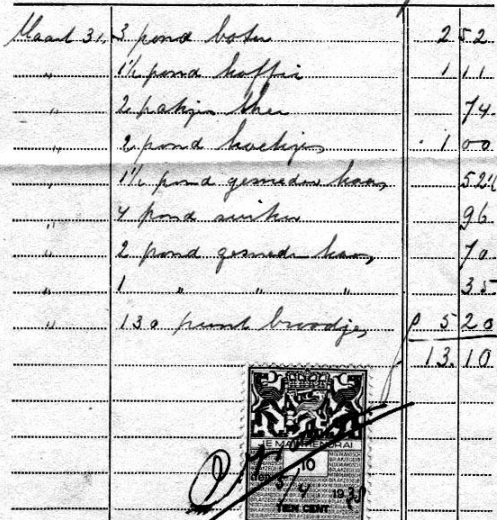 Maart 31. 3 pond boter 2 52
" 1½ pond koffie 1 11
" 2 pakjes thee 74
" 2 pond koekjes 1 00
" 1½ pond gesneden kaas 52½
" 4 pond suiker 96
" 2 pond gesneden kaas 70
" 1 " " " 35
" 130 punt broodjes 5 20
13.10
JE MAINTIENDRAI
10
den 5/4 1938
TIEN CENT